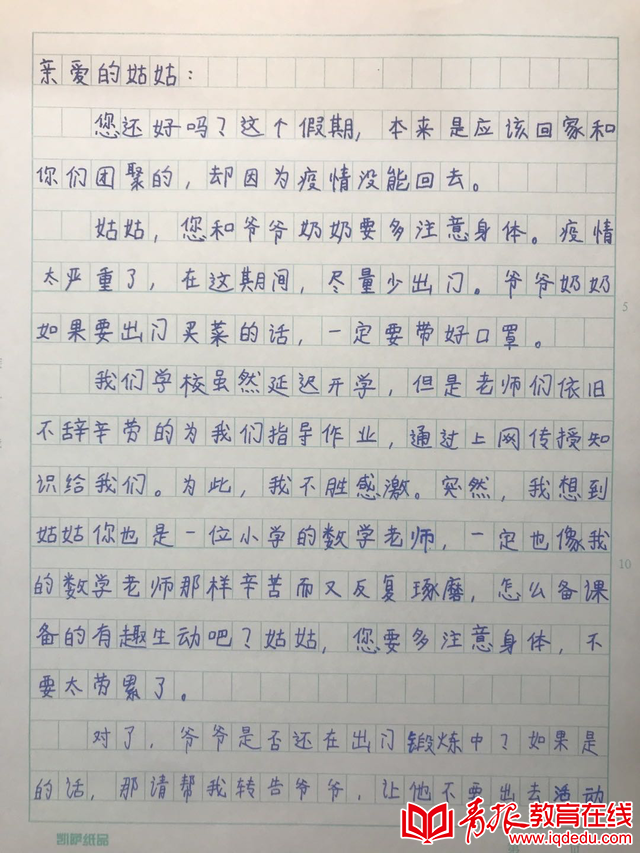 亲爱的姑姑：
您还好吗？这个假期，本来是应该回家和
你们团聚的，却因为疫情没能回去。
姑姑，您和爷爷奶奶要多注意身体。疫情
太严重了，在这期间，尽量少出门。爷爷奶奶
如果要出门买菜的话，一定要带好口罩。
我们学校虽然延迟开学，但是老师们依旧
不辞辛劳的为我们指导作业，通过上网传授知
识给我们。为此，我不胜感激。突然，我想到
姑姑你也是一位小学的数学老师，一定也像我
的数学老师那样辛苦而又反复琢磨，怎么备课
备的有趣生动吧？姑姑，您要多注意身体，不
要太劳累了。
对了，爷爷是否还在出门锻炼中？如果是
的话，那请帮我转告爷爷，让他不要出去活动
5
10
凯萨纸品
青报教育在线
www.iqdedu.com